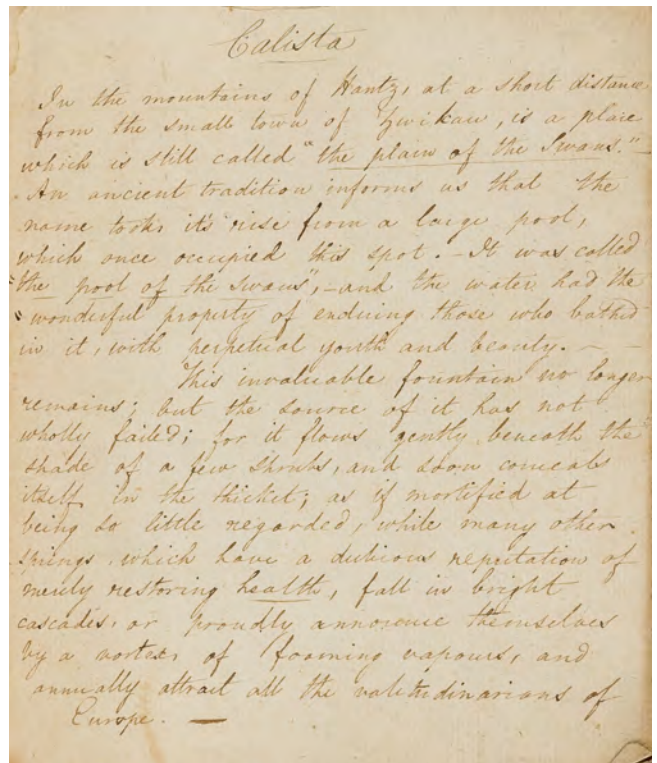 Calista
In the mountains of Hantz, at a short distance
from the small town of Zwikau, is a place
which is still called "the plain of the Swans."—
An ancient tradition informs us that the
name took it's rise from a large pool,
which once occupied this spot. — It was called
"the pool of the Swans", — and the water had the
"wonderful property of enduing those who bathed
in it, with perpetual youth and beauty. — —
This invaluable fountain no longer
remains; but the source of it has not
wholly failed; for it flows gently beneath the
shade of a few shrubs, and soon conceals
itself in the thicket; as if mortified at
being so little regarded, while many other
springs which have a dubious reputation of
merely restoring health, fall in bright
cascades, or proudly announce themselves
by a vortex of foaming vapours, and
annually attract all the valitudinarians of
Europe. —